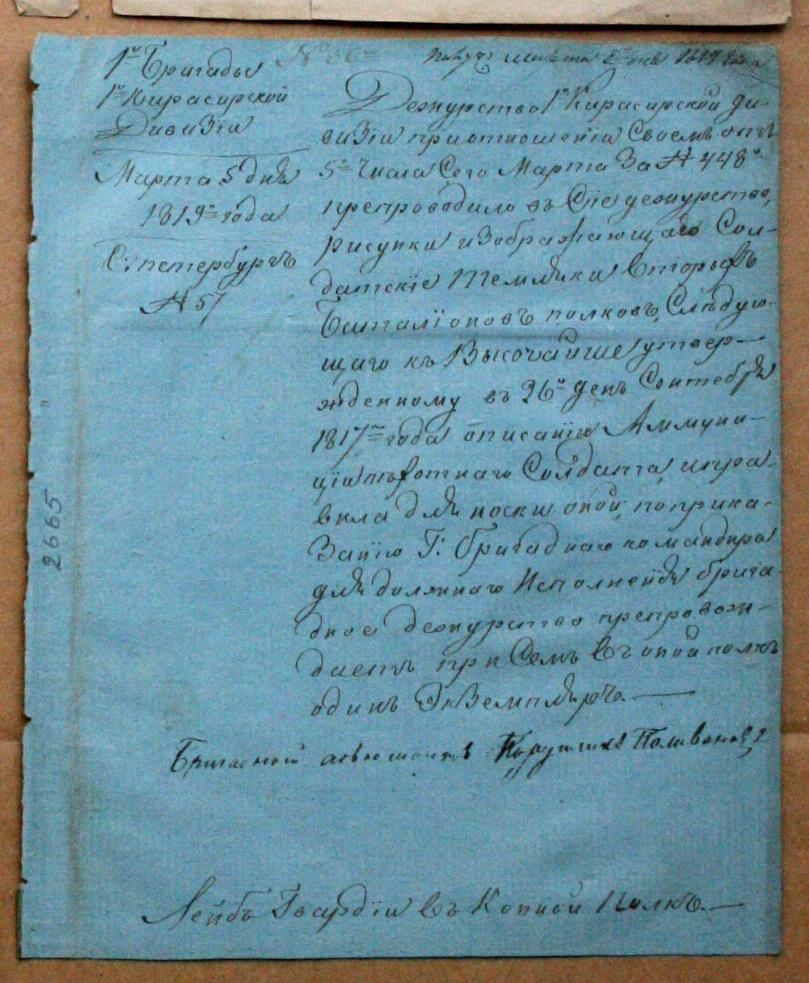 1й Бригады
1й Кирасирской
Дивизiи
Марта 5 дня
1819го года
С: петербургъ
№ 57
№ 86
Получ: Марта 1819 года
Дежурство 1й Кирасирской ди-
визiи приотношенiи Своемъ отъ
5го числа Сего Марта За № 448м
препроводило въ Сiе дежурство,
рисунки изображающаго Сол-
датскiе темляки вторыхъ
Баталiоновъ полковъ, Слѣдую-
щаго къ Высочайше утвер-
жденному въ 26й день Сентебря
1817го года описанiю Аммуни-
цiи пѣхотнаго Солдата, и пра-
вила для носки оной, поприка-
Занiю Г: бригаднаго командира
для должнаго Исполненiя брига-
дное дежурство препровож-
даетъ при Семъ въ оной полкъ
одинъ Экземпляръ.
Бригадной адъютантъ Порутчикъ Поливановъ 2
Лейбъ Гвардiи въ Конной Полкъ.
2665